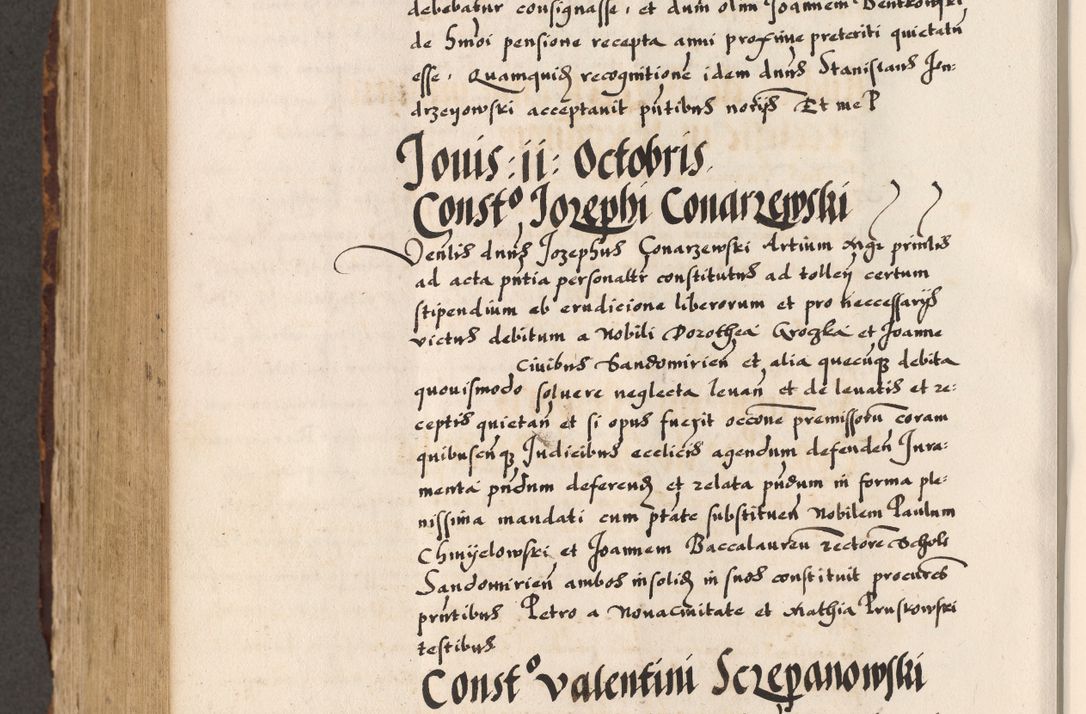 debebatur consignasse, et dum olim Joannem Bentkowski
de hmoi pensione recepta anni proxime preteriti quietatu
esse, Quamquid recognitione idem dnus Stanislaus Jen:
drzeyowski acceptauit pntibus notijs Et me P
Jouis :ii: Octobris
Const° Jozephi Conarzewski
Venlis dnus Jozephus Conarzewski Artium Mgr pnnlis
ad acta pntia personaltr constitutus ad tollen certum
stipendium ab erudicione liberorum et pro neccessarijs
victus debitum a Nobili Dorothea Groczka et Joanne
Ciuibus Sandomirien et alia quecunque debita
quouismodo soluere neglecta leuan et de leuatis et re:
ceptis quietan et si opus fuerit occone premissoru coram
quibuscunque Judicibus ecclicis agendum defenden Jura:
menta pndum deferend et relata pndum in forma ple:
nissima mandati cum ptate substituen Nobilem Paulum
Chmyelowski et Joannem Baccalaureu rectore Schole
Sandomirien ambos insolid in suos constituit procures
pntibus Petro a Nouaciuitate et Mathia Pruskowski
testibus
Const° Valentini Sczepanowski